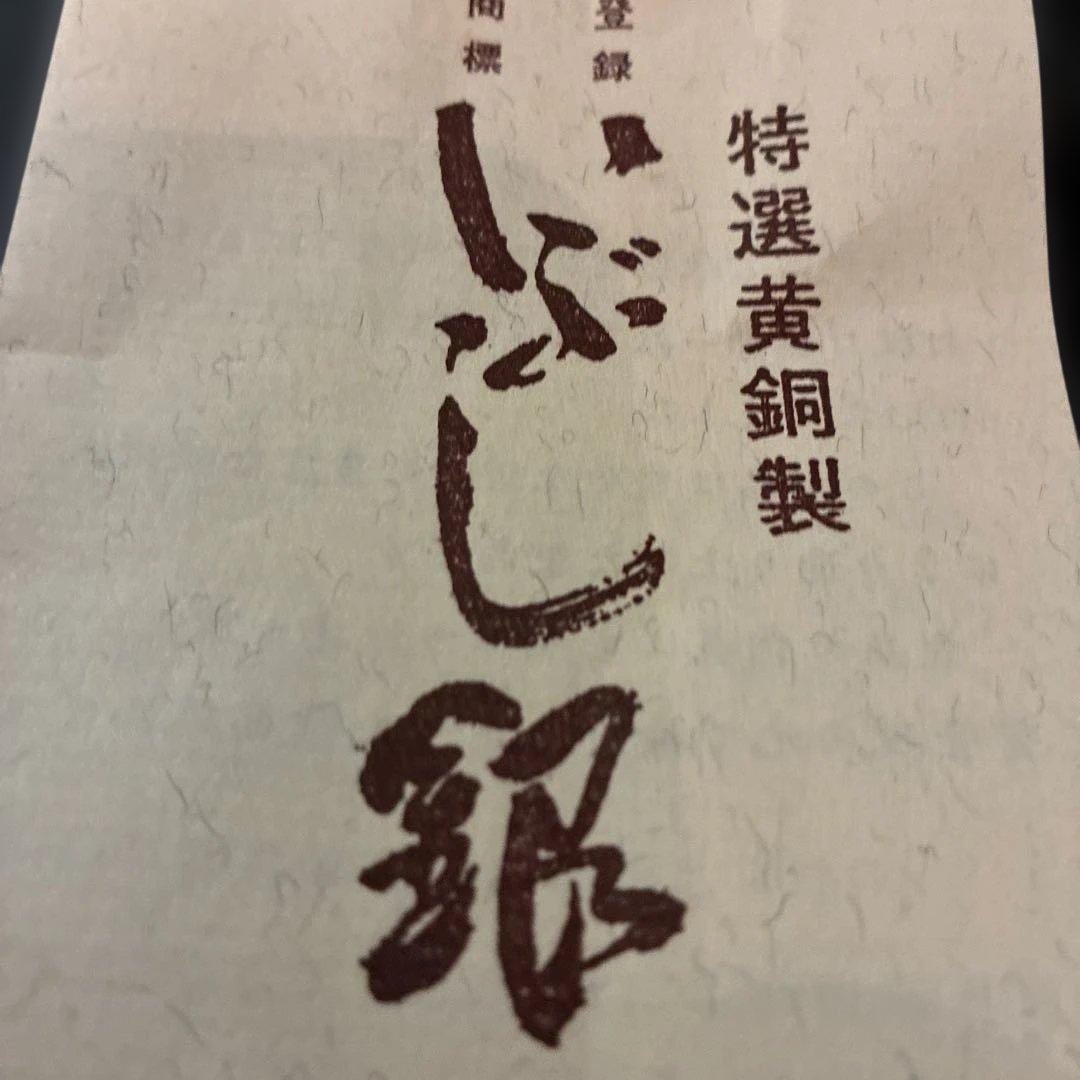 特選黄銅製
登録
商標
いぶし銀